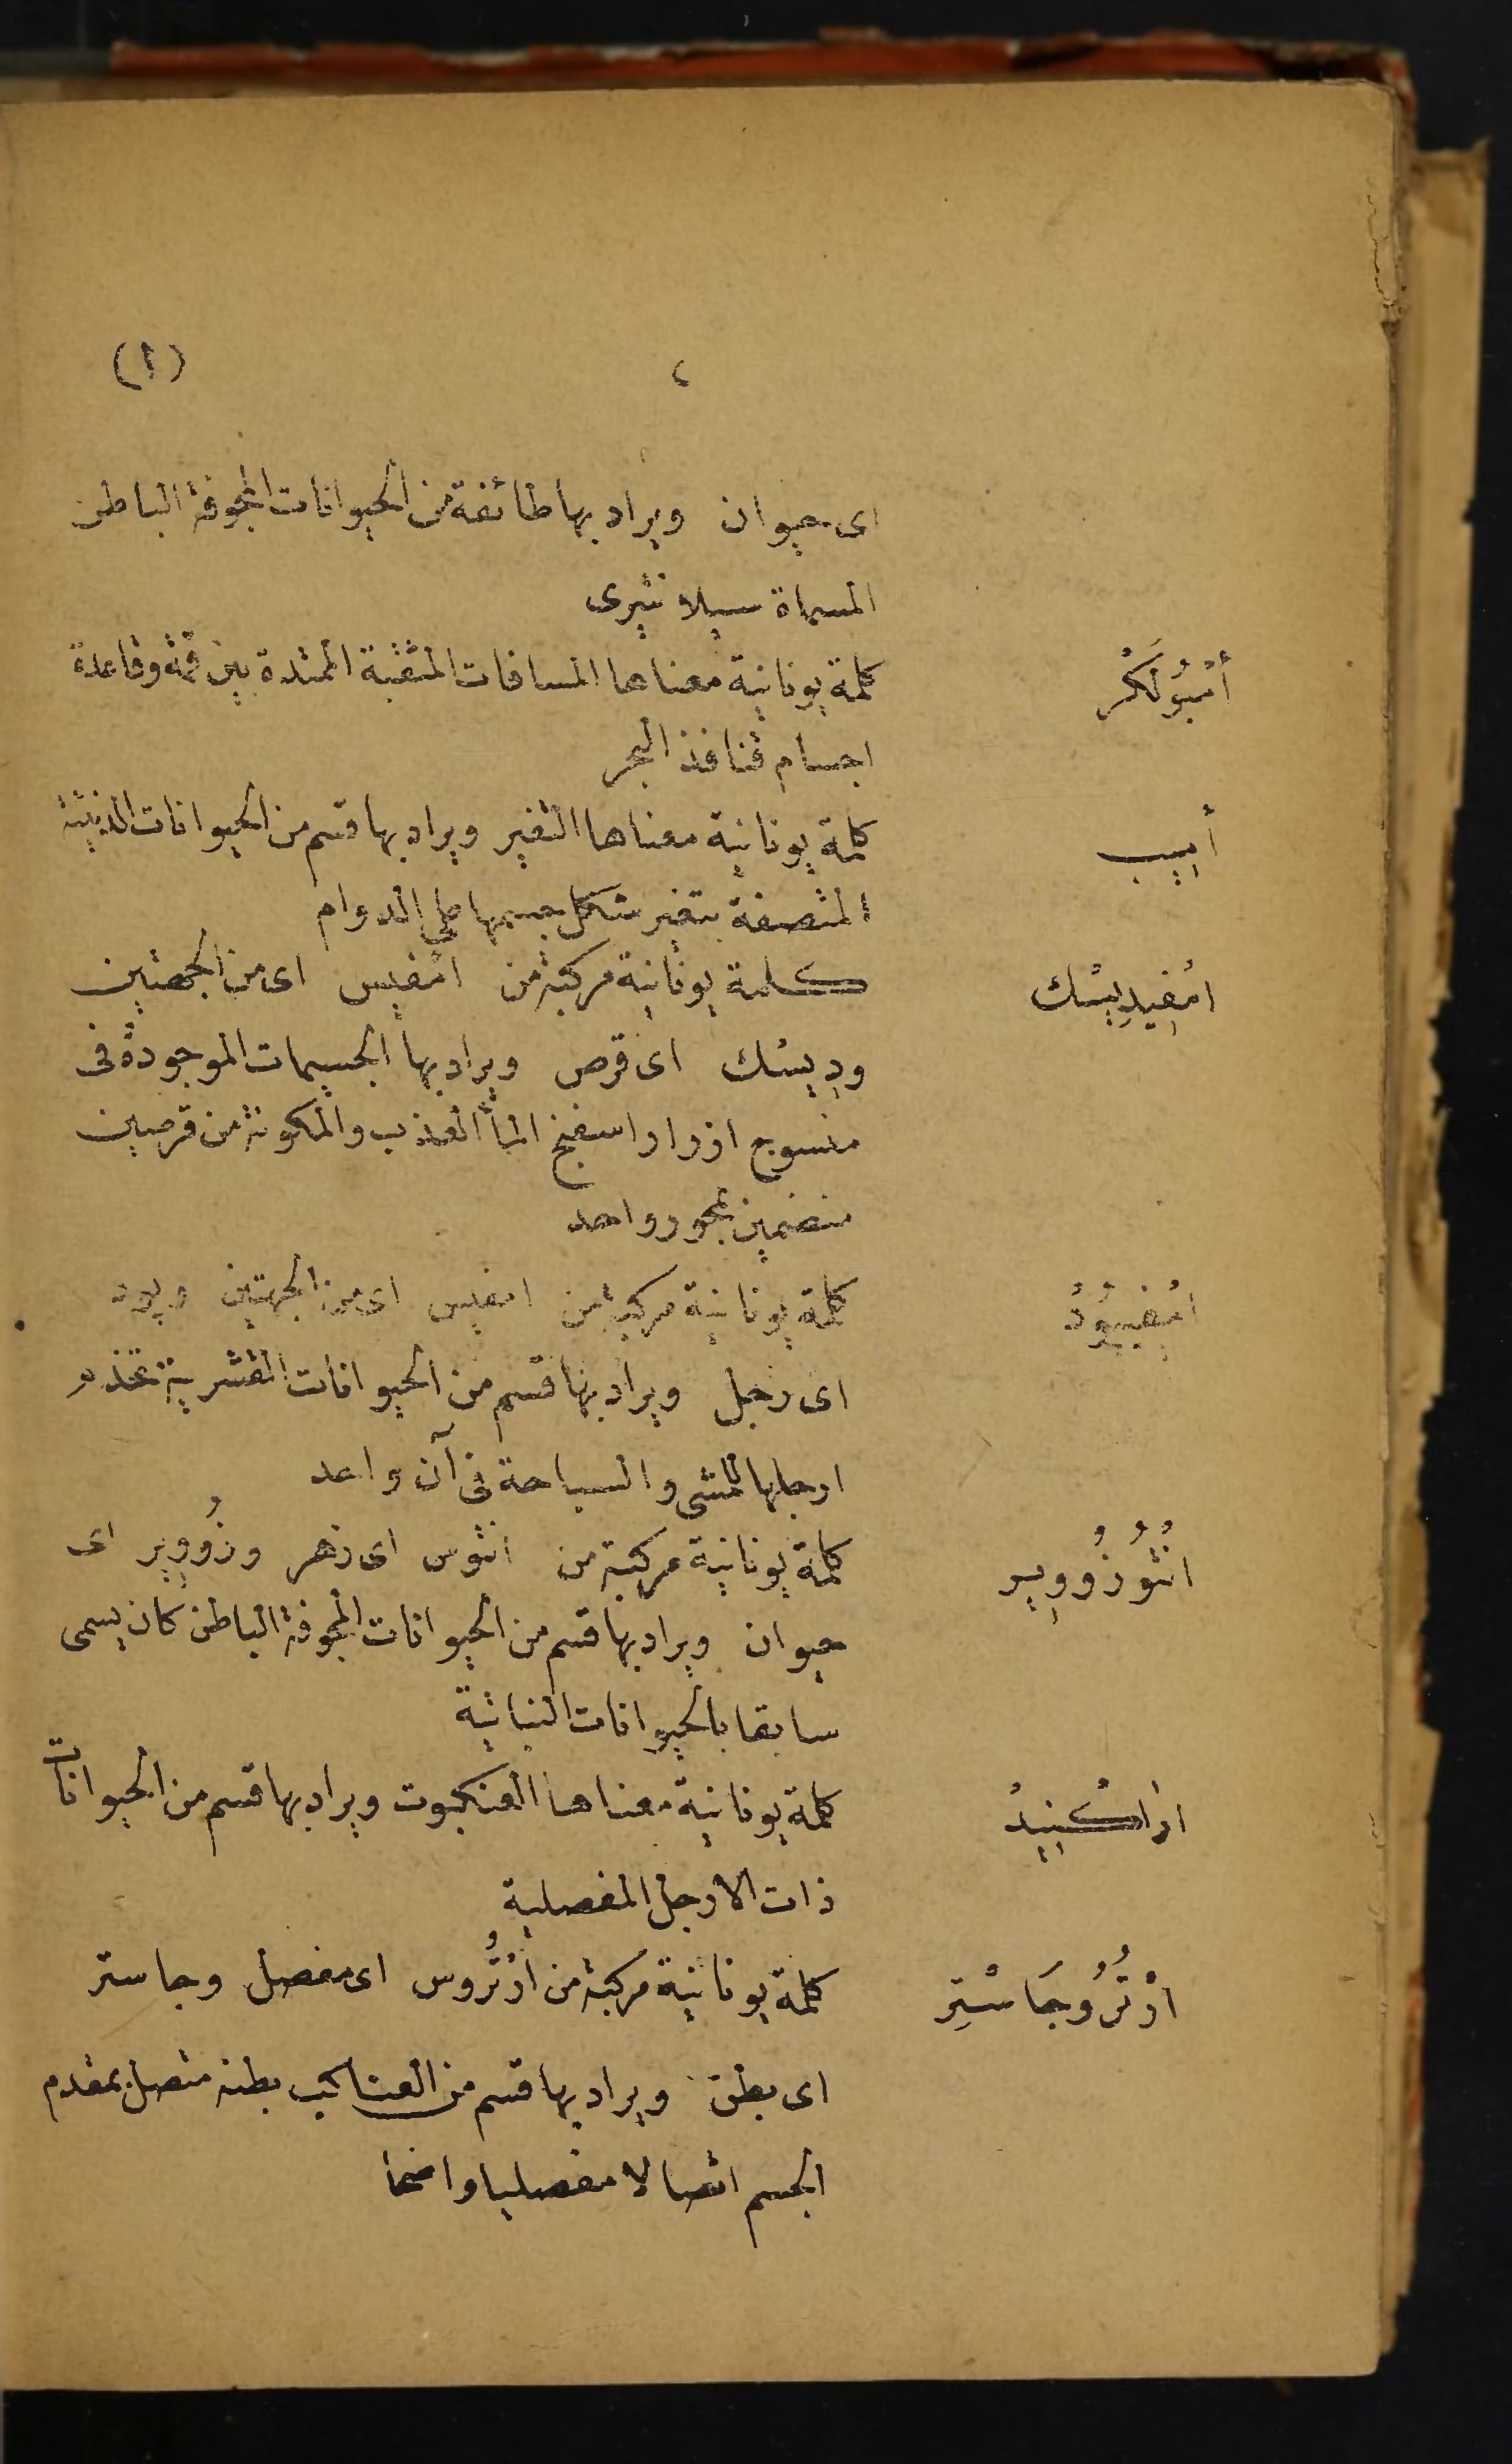 ٢ (ا)
اى حيوان ويراد بها طائفة من الحيوانات المجوفة الباطن
المسماة سيلانتيرى
أَنْبُولَكْر كلمة يونانية معناها المسافات المثقبة الممتدة بين قمة وقاعدة
اجسام قنافذ البحر
أميب كلمة يونانية معناها التغير ويراد بها قسم من الحيوانات الدنيئة
المتصفة بتغير شكل جسمها على الدوام
امْفِيدِيسْك كلمة يونانية مركبة من امفيس اى من الجهتين
وديسك اى قرص ويراد بها الجسيمات الموجودة فى
منسوج ازرار اسفنج الماء العذب والمكونة من قرصين
منضمين بمحور واحد
امْفِيپُودْ كلمة يونانية مركبة من امفيس اى من الجهتين وپود
اى رجل ويراد بها قسم من الحيوانات القشرية تخذم
ارجلها للمشى والسباحة فى آن واحد
انْتُوزُووِير كلمة يونانية مركبة من انتوس اى زهر وزُووِير اى
حيوان ويراد بها قسم من الحيوانات المجوفة الباطن كان يسمى
سابقا بالحيوانات النباتية
اراكنيدْ كلمة يونانية معناها العنكبوت ويراد بها قسم من الحيوانات
ذات الارجل المفصلية
ارْتُرُوجَاسْتِر كلمة يونانية مركبة من ارْتُروس اى مفصل وجاستر
اى بطن ويراد بها قسم من العناكب بطنه متصل بمقدم
الجسم اتصالا مفصليا واضحا